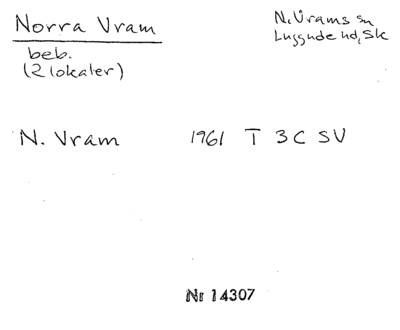 Norra Vram
N. Vrams sn
beb.
Luggude hd, Sk
(2 lokaler)
N. Vram 1961 T 3C SV
Nr 14307